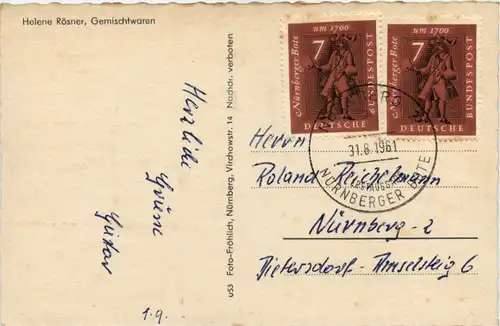 Helene Rösner, Gemischtwaren
Herzliche
Grüße
Gustav
1.9.
u53 Foto-Fröhlich, Nürnberg, Virchowstr. 14 Nachdr. verboten
Nürnberger Bote
um 1700
7
DEUTSCHE
BUNDESPOST
Nürnberger Bote
um 1700
7
DEUTSCHE
BUNDESPOST
31.8.1961
NÜRNBERGER BOTE
Herrn
Roland Reichelmann
Nürnberg-2
Dietersdorf - Amselsteig 6